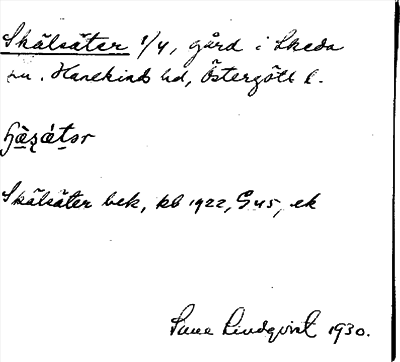 Skälsäter 1/4, gård i Skeda
sn. Hanekinds hd, Östergötl l.
Skälsäter bek, kb 1922, G45, ek
Sune Lindqvist 1930.